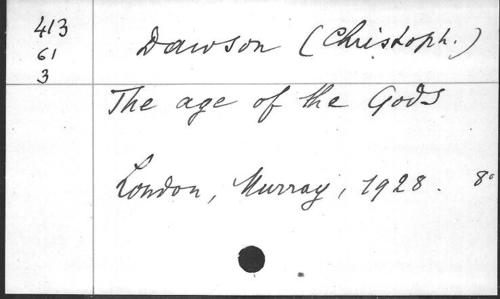 413
61
3
Dawson (Christoph.)
The age of the Gods
London, Murray, 1928. 8°